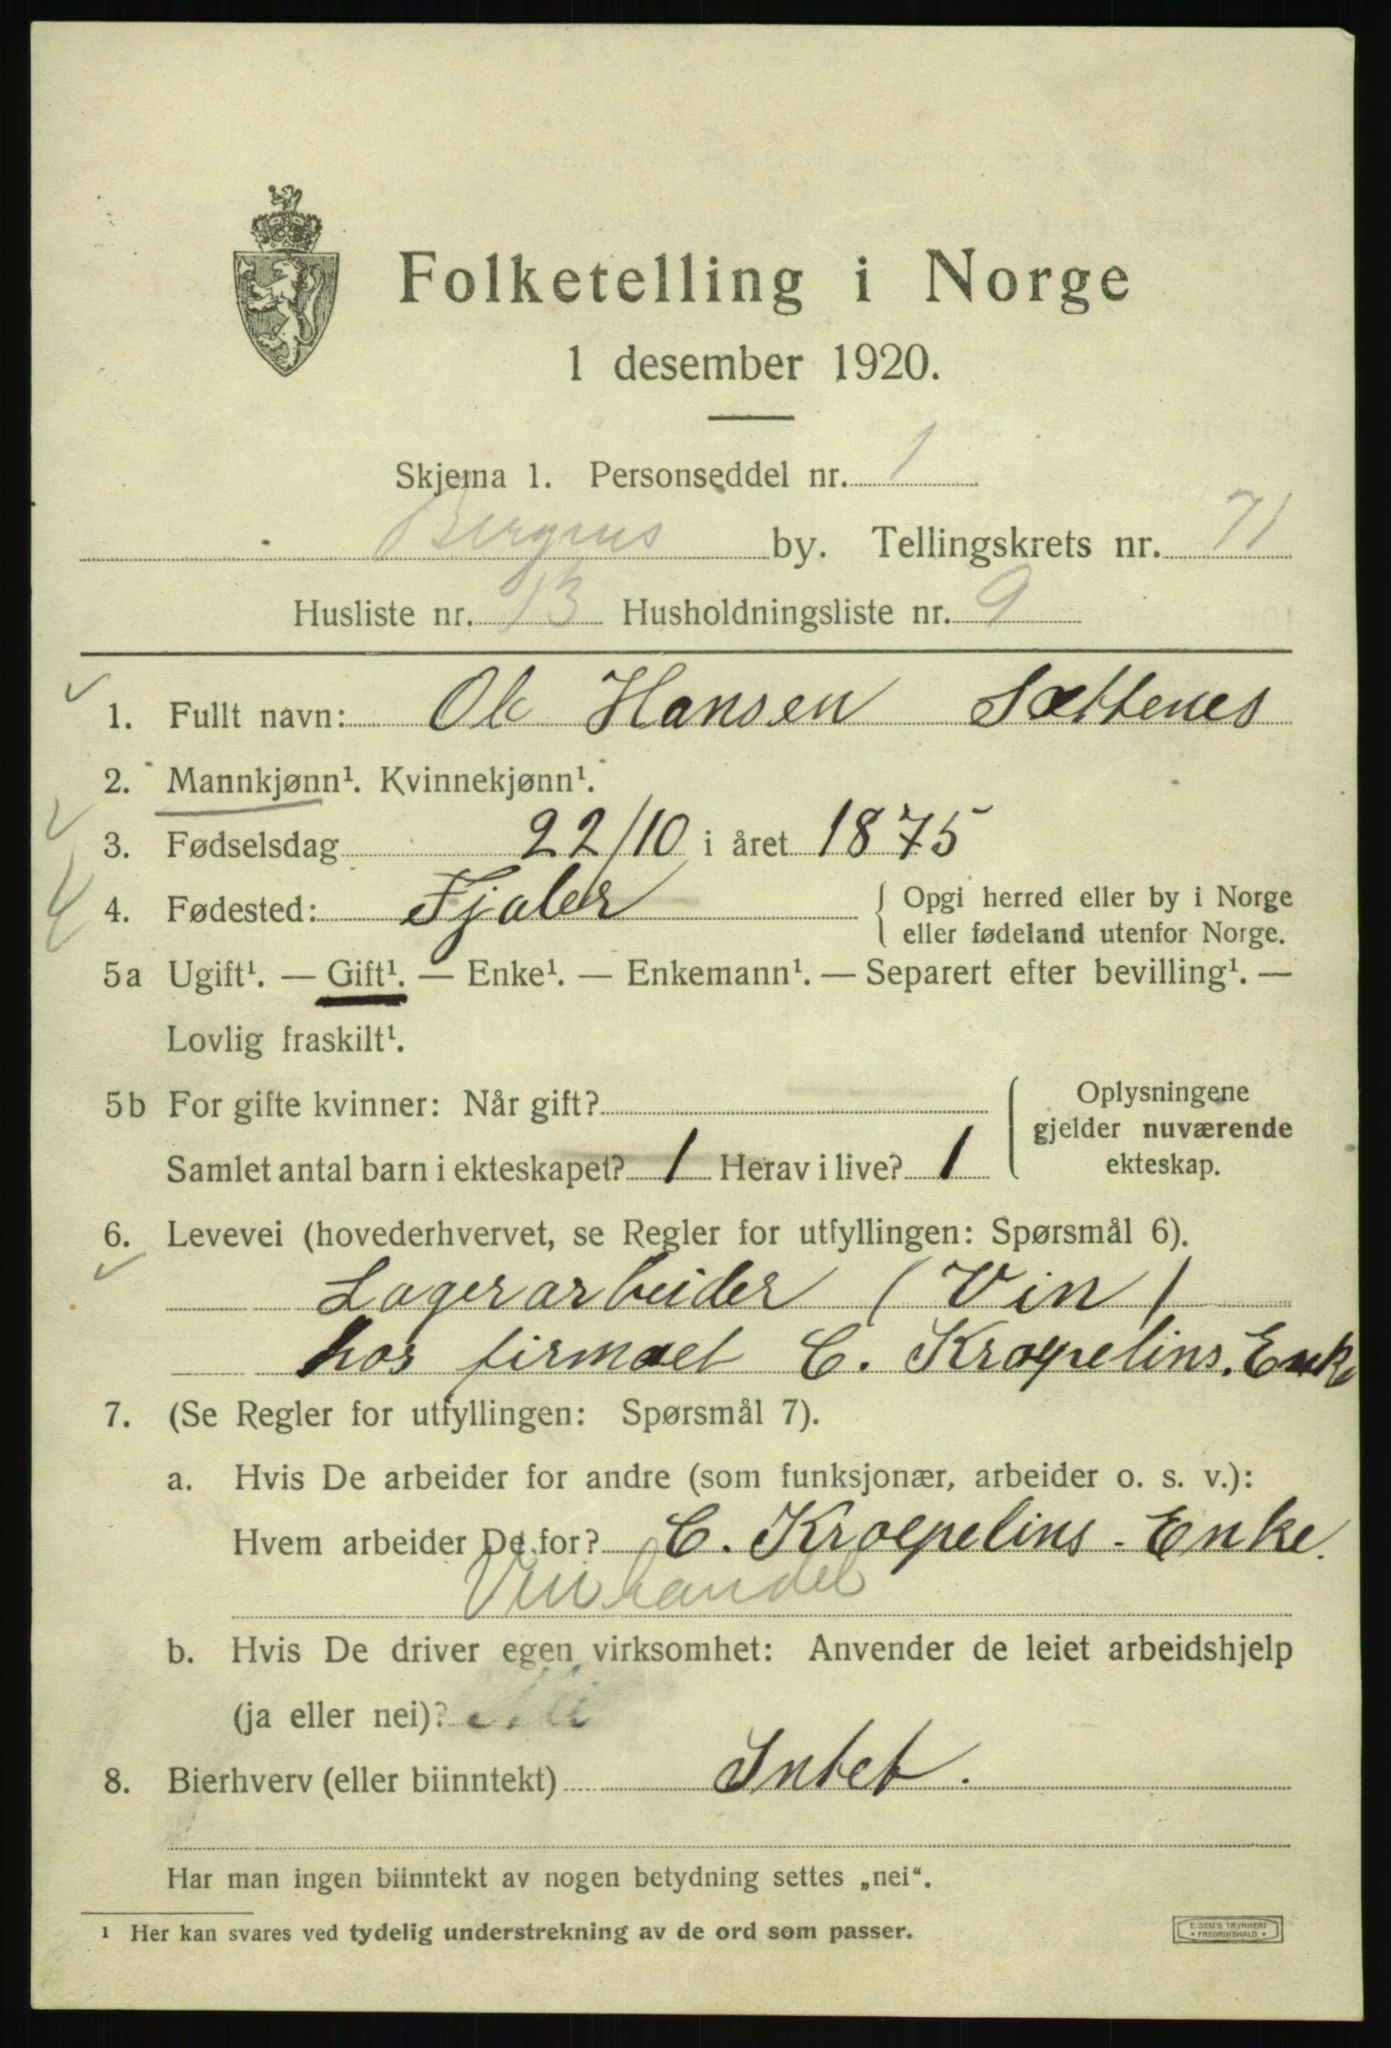 Folketelling i Norge
1 desember 1920.
Skjema 1. Personseddel nr. 1
Bergens by. Tellingskrets nr. 71
Husliste nr. 13 Husholdningsliste nr. 9
1. Fullt navn: Ole Hansen Sættenes
2. Mannkjønn¹. Kvinnekjønn¹.
3. Fødselsdag 22/10 i året 1875
4. Fødested: Fjaler { Opgi herred eller by i Norge
eller fødeland utenfor Norge.
5a Ugift¹. — Gift¹. — Enke¹. — Enkemann¹. — Separert efter bevilling¹. —
Lovlig fraskilt¹.
5b For gifte kvinner: Når gift?
Samlet antal barn i ekteskapet? 1 Herav i live? 1
Oplysningene
gjelder nuværende
ekteskap.
6. Levevei (hovederhvervet, se Regler for utfyllingen: Spørsmål 6).
Lagerarbeider (Vin)
hos firmaet C. Kroepelins. Enke
7. (Se Regler for utfyllingen: Spørsmål 7).
a. Hvis De arbeider for andre (som funksjonær, arbeider o. s. v.):
Hvem arbeider De for? C. Kroepelins - Enke.
Vinhandel
b. Hvis De driver egen virksomhet: Anvender de leiet arbeidshjelp
(ja eller nei)?
8. Bierhverv (eller biinntekt) Intet.
Har man ingen biinntekt av nogen betydning settes „nei“.
¹ Her kan svares ved tydelig understrekning av de ord som passer.
E. SEM'S TRYKKERI
* FREDRIKSHALD *